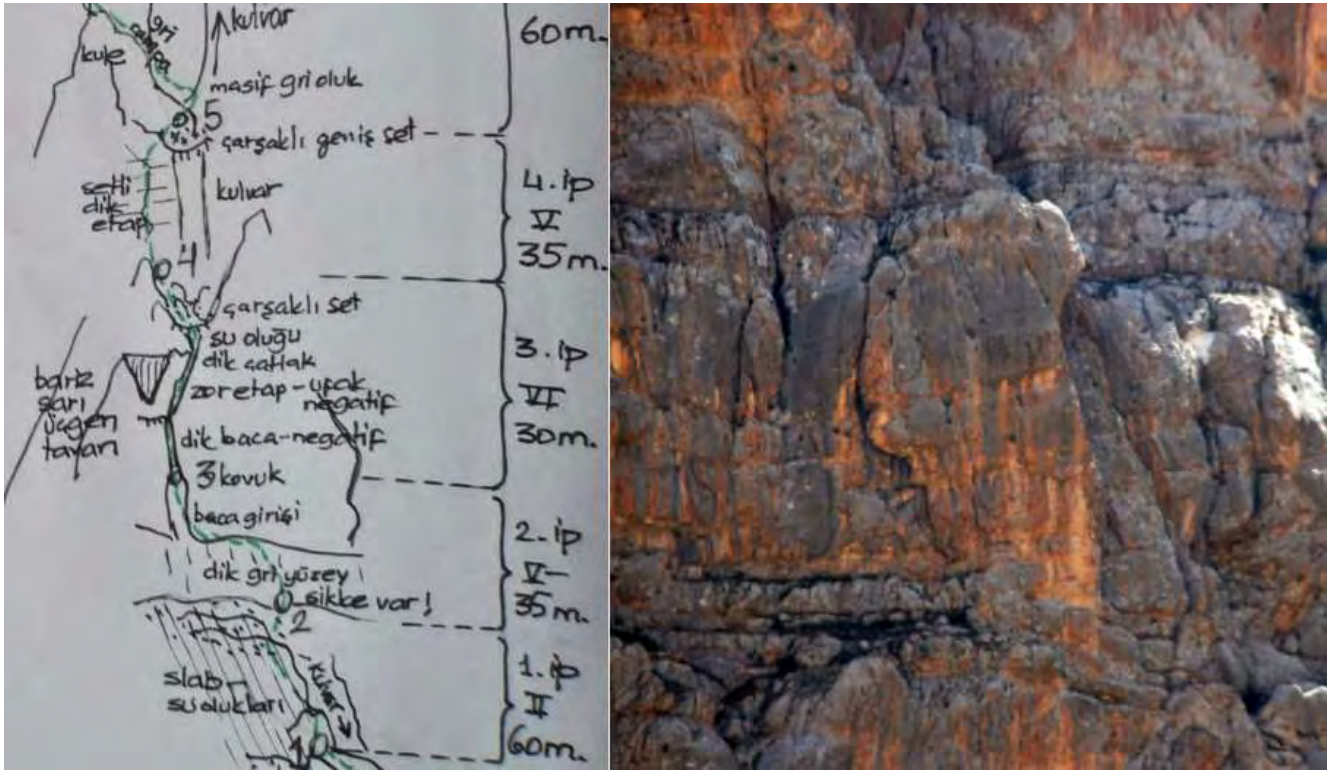 kulvar
gri
rampa
kule
60m.
masif gri oluk
5
çarşaklı geniş set
setli
dik
etap
kulvar
4. ip
V
35m.
4
çarşaklı set
su oluğu
dik çatlak
zor etap - ufak
negatif
bariz
sarı
üçgen
tavan
dik baca-negatif
3. ip
VI
30m.
3 kovuk
baca girişi
dik gri yüzey
sikke var!
2
2. ip
V-
35m.
kulvar
slab
su olukları
1
1. ip
II
60m.